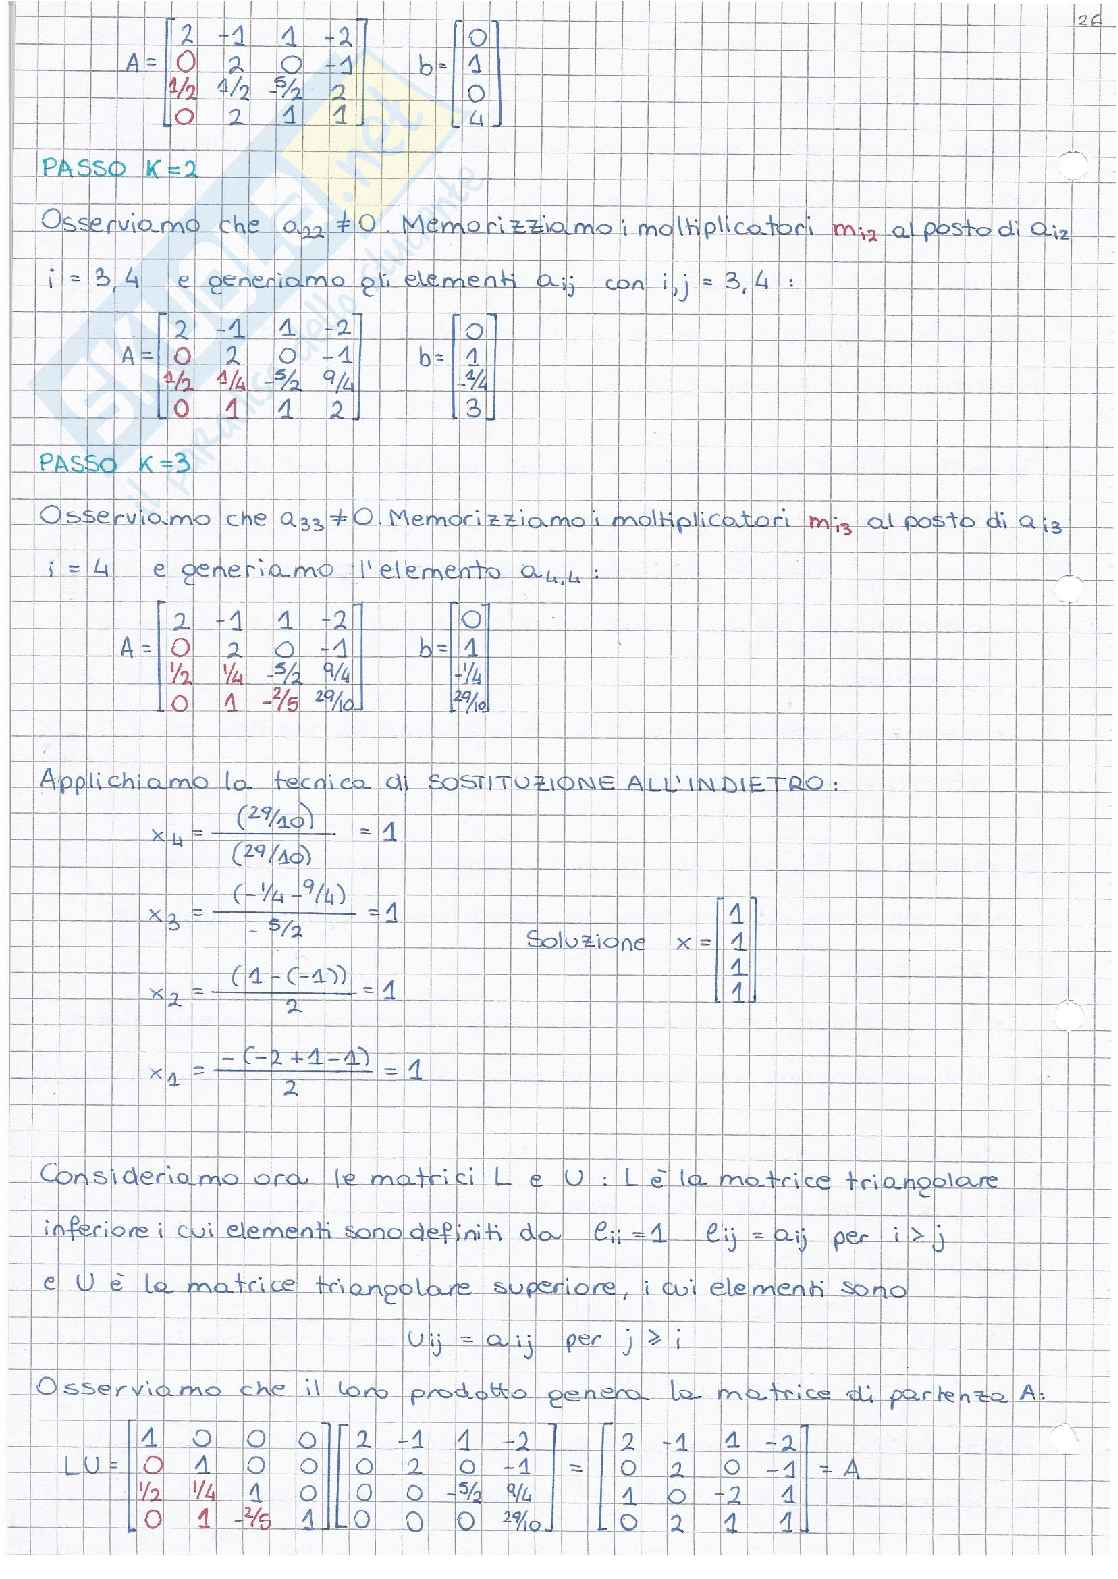 26
2 -1 1 -2 0
A = 0 2 0 -1 b = 1
1/2 1/2 -5/2 2 0
0 2 1 1 4
PASSO K=2
Osserviamo che a22 ≠ 0. Memorizziamo i moltiplicatori mi2 al posto di ai2
i = 3,4 e generiamo gli elementi aij con i,j = 3,4 :
2 -1 1 -2 0
A = 0 2 0 -1 b = 1
1/2 1/4 -5/2 9/4 -1/4
0 1 1 2 3
PASSO K=3
Osserviamo che a33 ≠ 0. Memorizziamo i moltiplicatori mi3 al posto di ai3
i = 4 e generiamo l'elemento a4,4 :
2 -1 1 -2 0
A = 0 2 0 -1 b = 1
1/2 1/4 -5/2 9/4 -1/4
0 1 -2/5 29/10 29/10
Applichiamo la tecnica di SOSTITUZIONE ALL'INDIETRO:
x4 = (29/10) / (29/10) = 1
x3 = (-1/4 - 9/4) / -5/2 = 1
Soluzione x = 1 1 1 1
x2 = (1-(-1)) / 2 = 1
x1 = -(-2+1-1) / 2 = 1
Consideriamo ora le matrici L e U : L è la matrice triangolare
inferiore i cui elementi sono definiti da lii = 1 lij = aij per i > j
e U è la matrice triangolare superiore, i cui elementi sono
uij = aij per j ≥ i
Osserviamo che il loro prodotto genera la matrice di partenza A:
1 0 0 0 2 -1 1 -2 2 -1 1 -2
LU = 0 1 0 0 0 2 0 -1 = 0 2 0 -1 = A
1/2 1/4 1 0 0 0 -5/2 9/4 1 0 -2 1
0 1 -2/5 1 0 0 0 29/10 0 2 1 1
SKUOLA.net